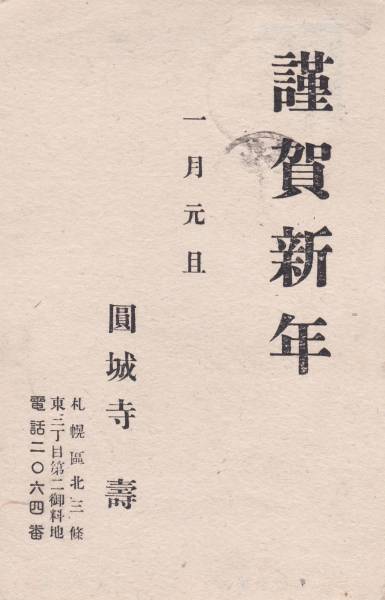 謹賀新年
一月元旦
圓城寺 壽
札幌區北三條
東三丁目第二御料地
電話二〇六四番